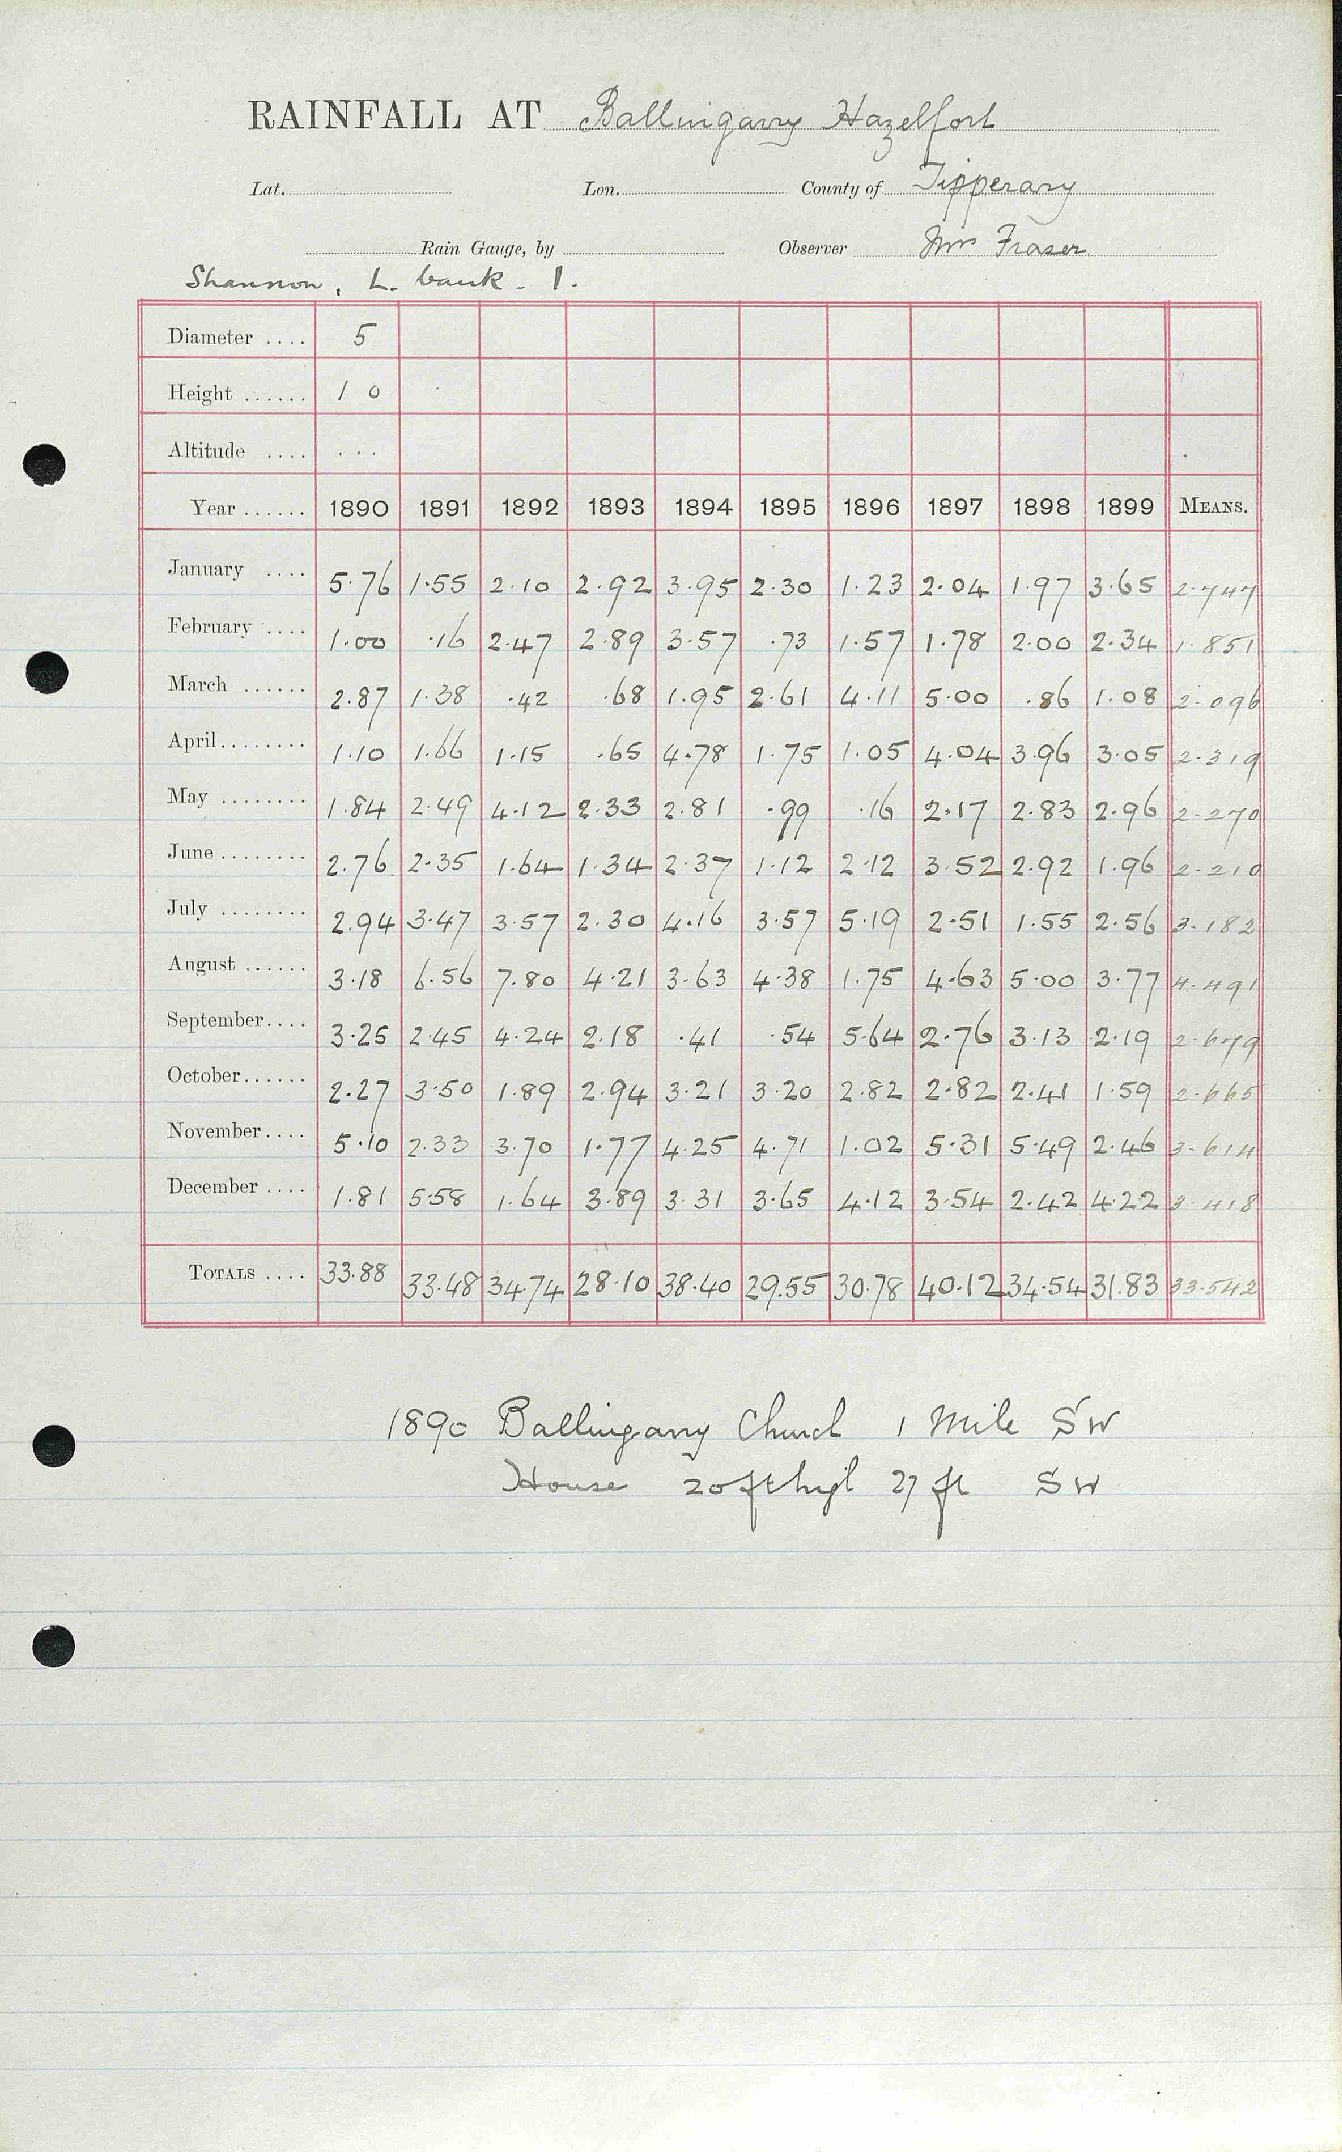 RAINFALL AT Ballingarry Hazelfort
Lat. Lon. County of Tipperary
Rain Gauge, by Observer Mrs Fraser
Shannon, L. bank - 1.
Diameter .... 5
Height ...... 1 0
Altitude .... ...
Year ...... 1890 1891 1892 1893 1894 1895 1896 1897 1898 1899 MEANS.
January .... 5.76 1.55 2.10 2.92 3.95 2.30 1.23 2.04 1.97 3.65 2.747
February .... 1.00 .16 2.47 2.89 3.57 .73 1.57 1.78 2.00 2.34 1.851
March ...... 2.87 1.38 .42 .68 1.95 2.61 4.11 5.00 .86 1.08 2.096
April........ 1.10 1.66 1.15 .65 4.78 1.75 1.05 4.04 3.96 3.05 2.319
May ........ 1.84 2.49 4.12 2.33 2.81 .99 .16 2.17 2.83 2.96 2.270
June ........ 2.76 2.35 1.64 1.34 2.37 1.12 2.12 3.52 2.92 1.96 2.210
July ........ 2.94 3.47 3.57 2.30 4.16 3.57 5.19 2.51 1.55 2.56 3.182
August ...... 3.18 6.56 7.80 4.21 3.63 4.38 1.75 4.63 5.00 3.77 4.491
September.... 3.25 2.45 4.24 2.18 .41 .54 5.64 2.76 3.13 2.19 2.679
October...... 2.27 3.50 1.89 2.94 3.21 3.20 2.82 2.82 2.41 1.59 2.665
November.... 5.10 2.33 3.70 1.77 4.25 4.71 1.02 5.31 5.49 2.46 3.614
December .... 1.81 5.58 1.64 3.89 3.31 3.65 4.12 3.54 2.42 4.22 3.418
TOTALS .... 33.88 33.48 34.74 28.10 38.40 29.55 30.78 40.12 34.54 31.83 33.542
1890 Ballingarry Church 1 Mile SW
House 20 ft high 27 ft SW